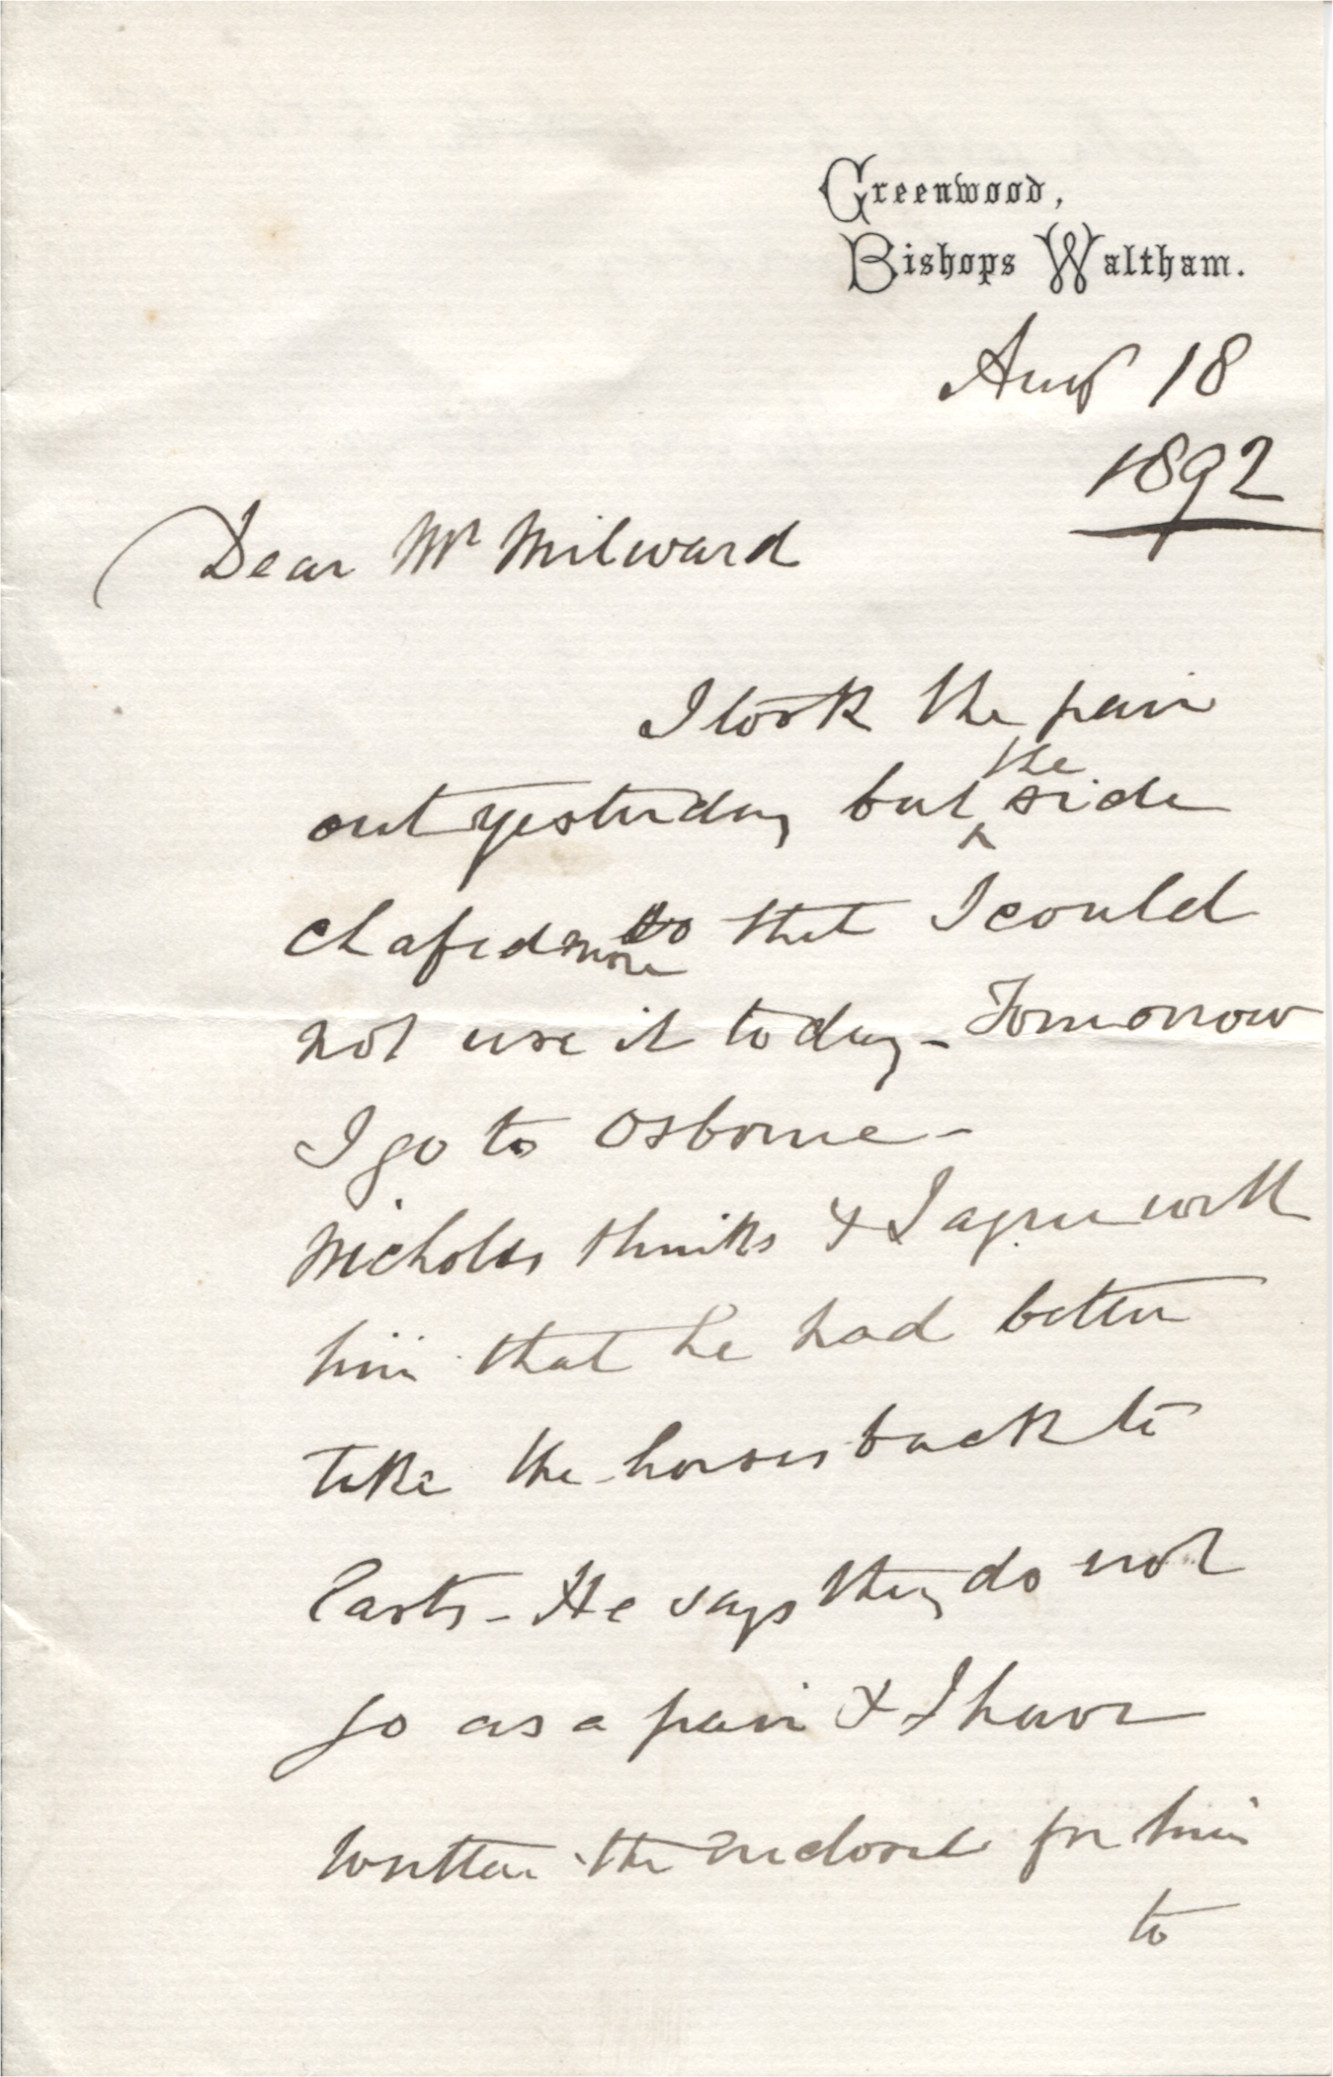 Greenwood,
Bishops Waltham.
Aug 18
1892
Dear Mr Milward
I took the pair
out yesterday but the side
chafed more so that I could
not use it today - Tomorrow
I go to Osborne -
Nicholas thinks & I agree with
him that he had better
take the horses back to
He says they do not
go as a pair & I have
written the enclosed for him
to